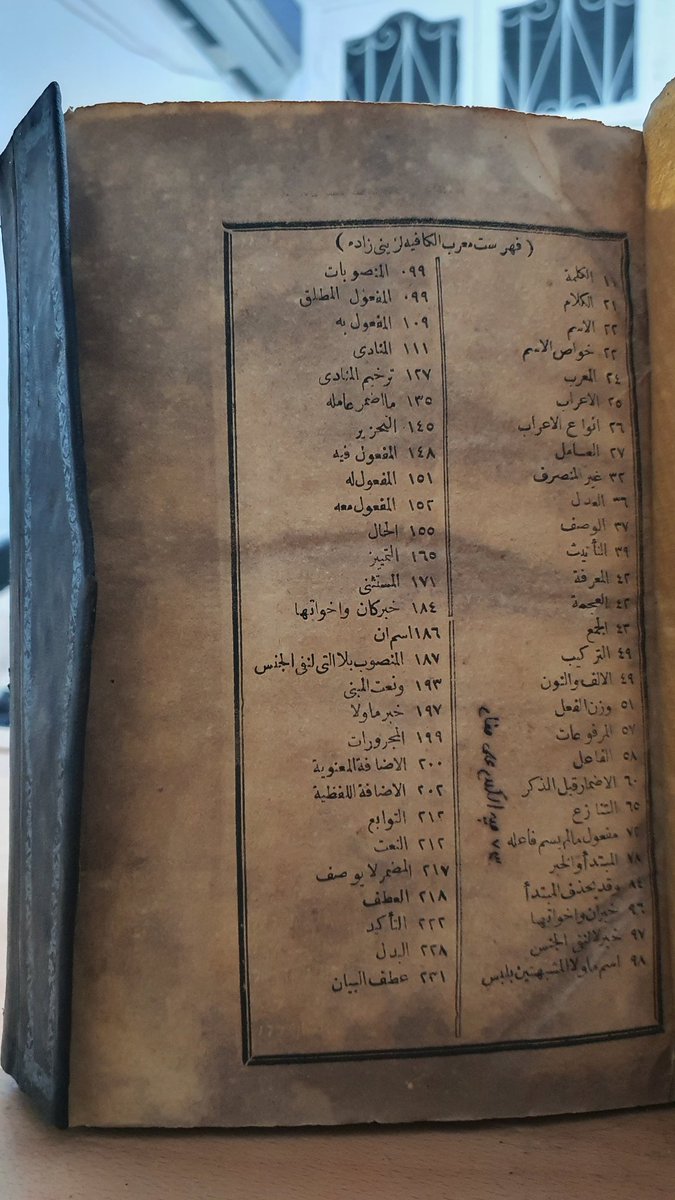 ( فهرست معرب الكافيه لزينى زاده )
١١ الكلمة
٢١ الكلام
٢٢ الاسم
٢٢ خواص الاسم
٢٤ المعرب
٢٥ الاعراب
٢٦ انواع الاعراب
٢٧ العامل
٣٢ غير المنصرف
٣٦ العدل
٣٧ الوصف
٣٩ التأنيث
٤٢ المعرفة
٤٢ العجمة
٤٣ الجمع
٤٩ التركيب
٤٩ الالف والنون
٥١ وزن الفعل
٥٧ المرفوعات
٥٨ الفاعل
٦٠ الاضمار قبل الذكر
٦٥ التنازع
٧٢ مفعول مالم يسم فاعله
٧٨ المبتدأ والخبر
٨٤ وقد يحذف المبتدأ
٩٦ خبران واخواتها
٩٧ خبر لالنفى الجنس
٩٨ اسم ماولا المشبهتين بليس
٠٩٩ المنصوبات
٠٩٩ المفعول المطلق
١٠٩ المفعول به
١١١ المنادى
١٢٧ ترخيم المنادى
١٣٥ مااضمر عامله
١٤٥ التحزير
١٤٨ المفعول فيه
١٥١ المفعول له
١٥٢ المفعول معه
١٥٥ الحال
١٦٥ التمييز
١٧١ المستثنى
١٨٤ خبر كان واخواتها
١٨٦ اسم ان
١٨٧ المنصوب بلا التى لنفى الجنس
١٩٣ ونعت المبنى
١٩٧ خبر ماولا
١٩٩ المجرورات
٢٠٠ الاضافة المعنوية
٢٠٢ الاضافة اللفظية
٢١٢ التوابع
٢١٢ النعت
٢١٧ المضمر لا يوصف
٢١٨ العطف
٢٢٢ التأكيد
٢٢٨ البدل
٢٣١ عطف البيان